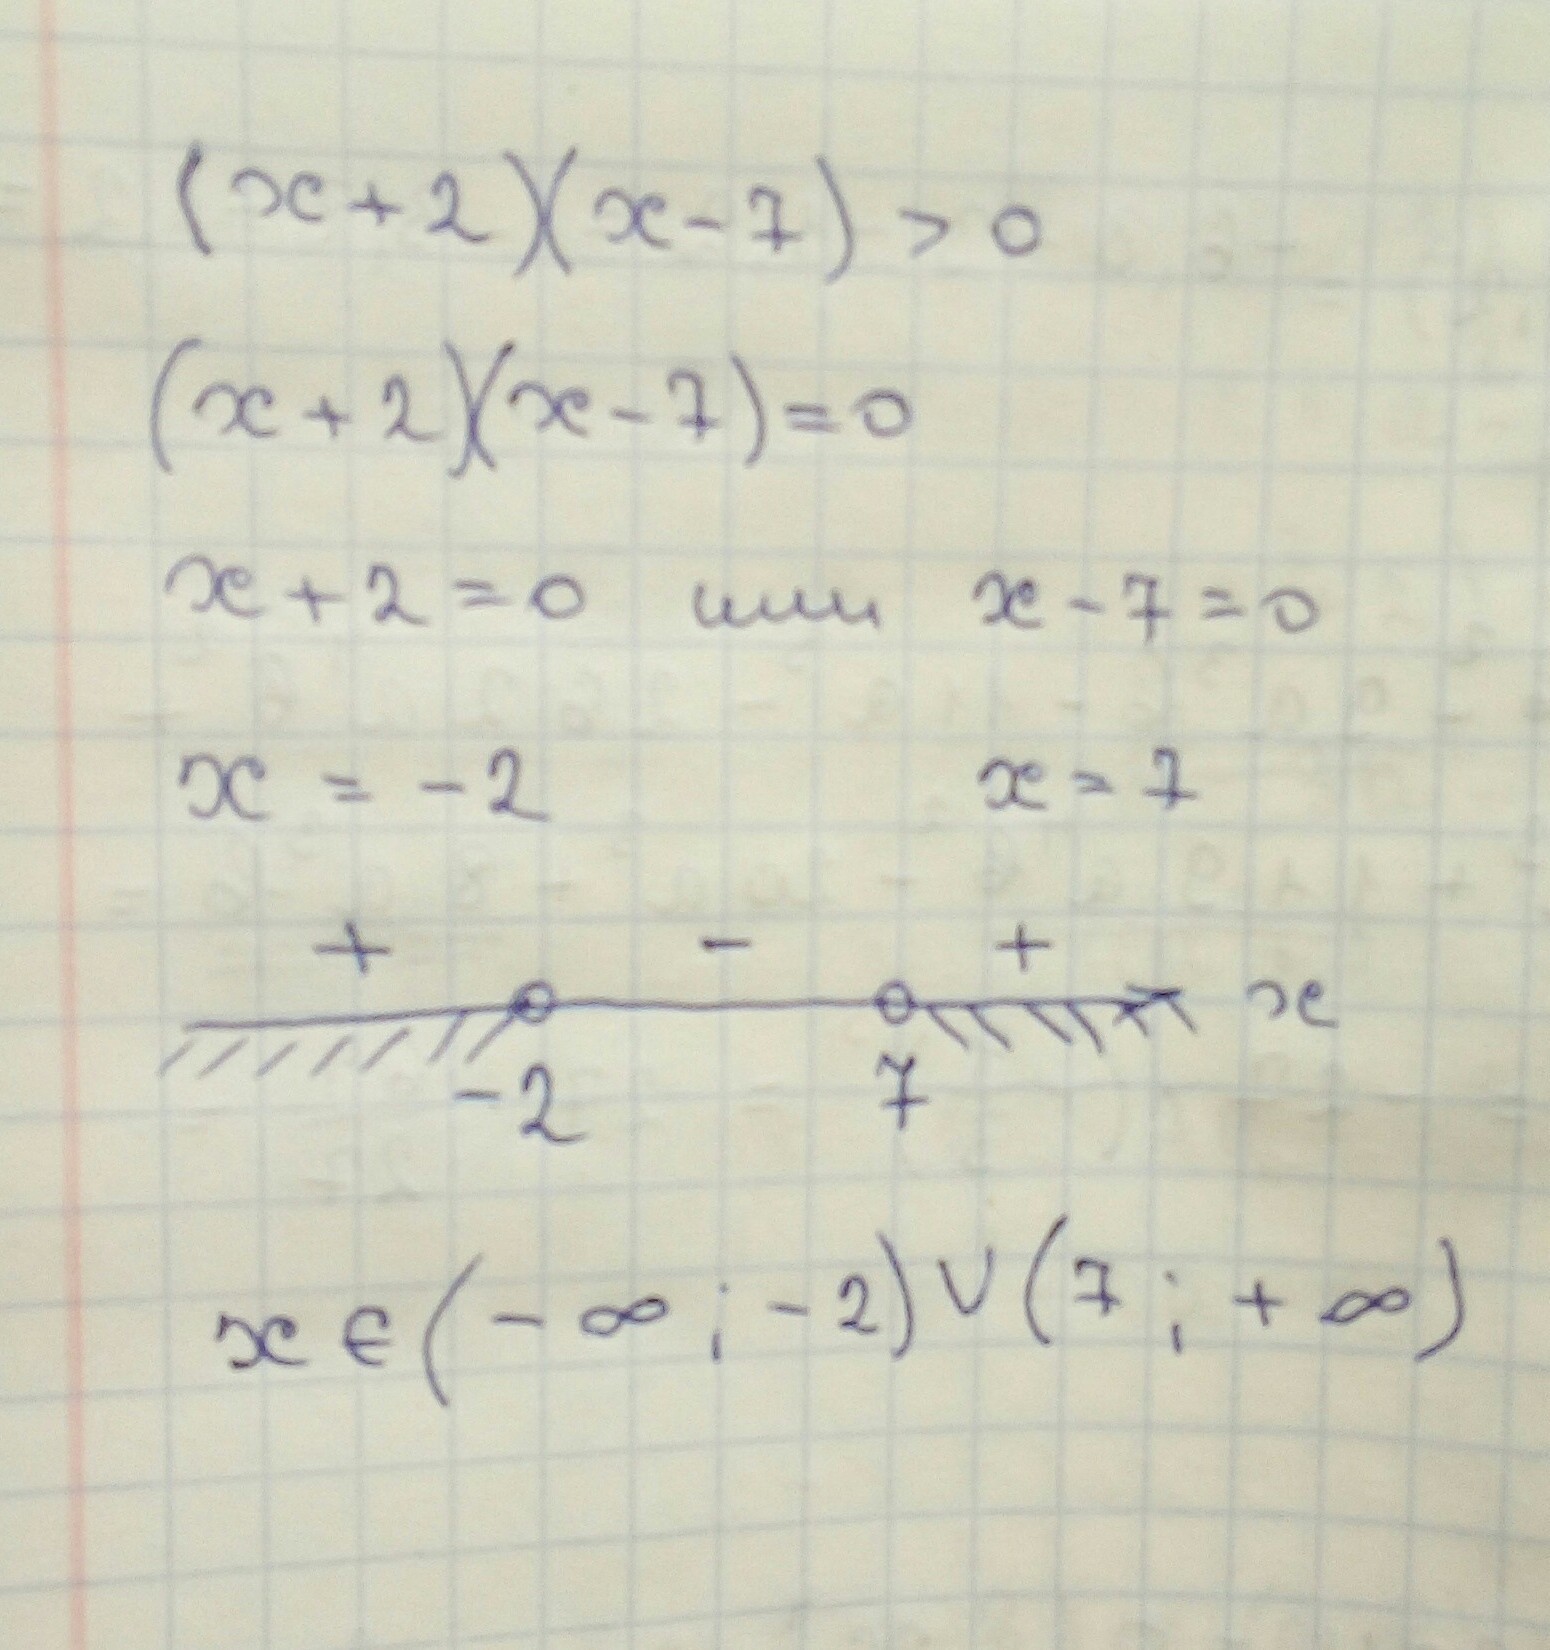 (x+2)(x-7)>0
(x+2)(x-7)=0
x+2=0 или x-7=0
x = -2 x=7
+ - +
x
-2 7
x∈(-∞;-2)∪(7;+∞)